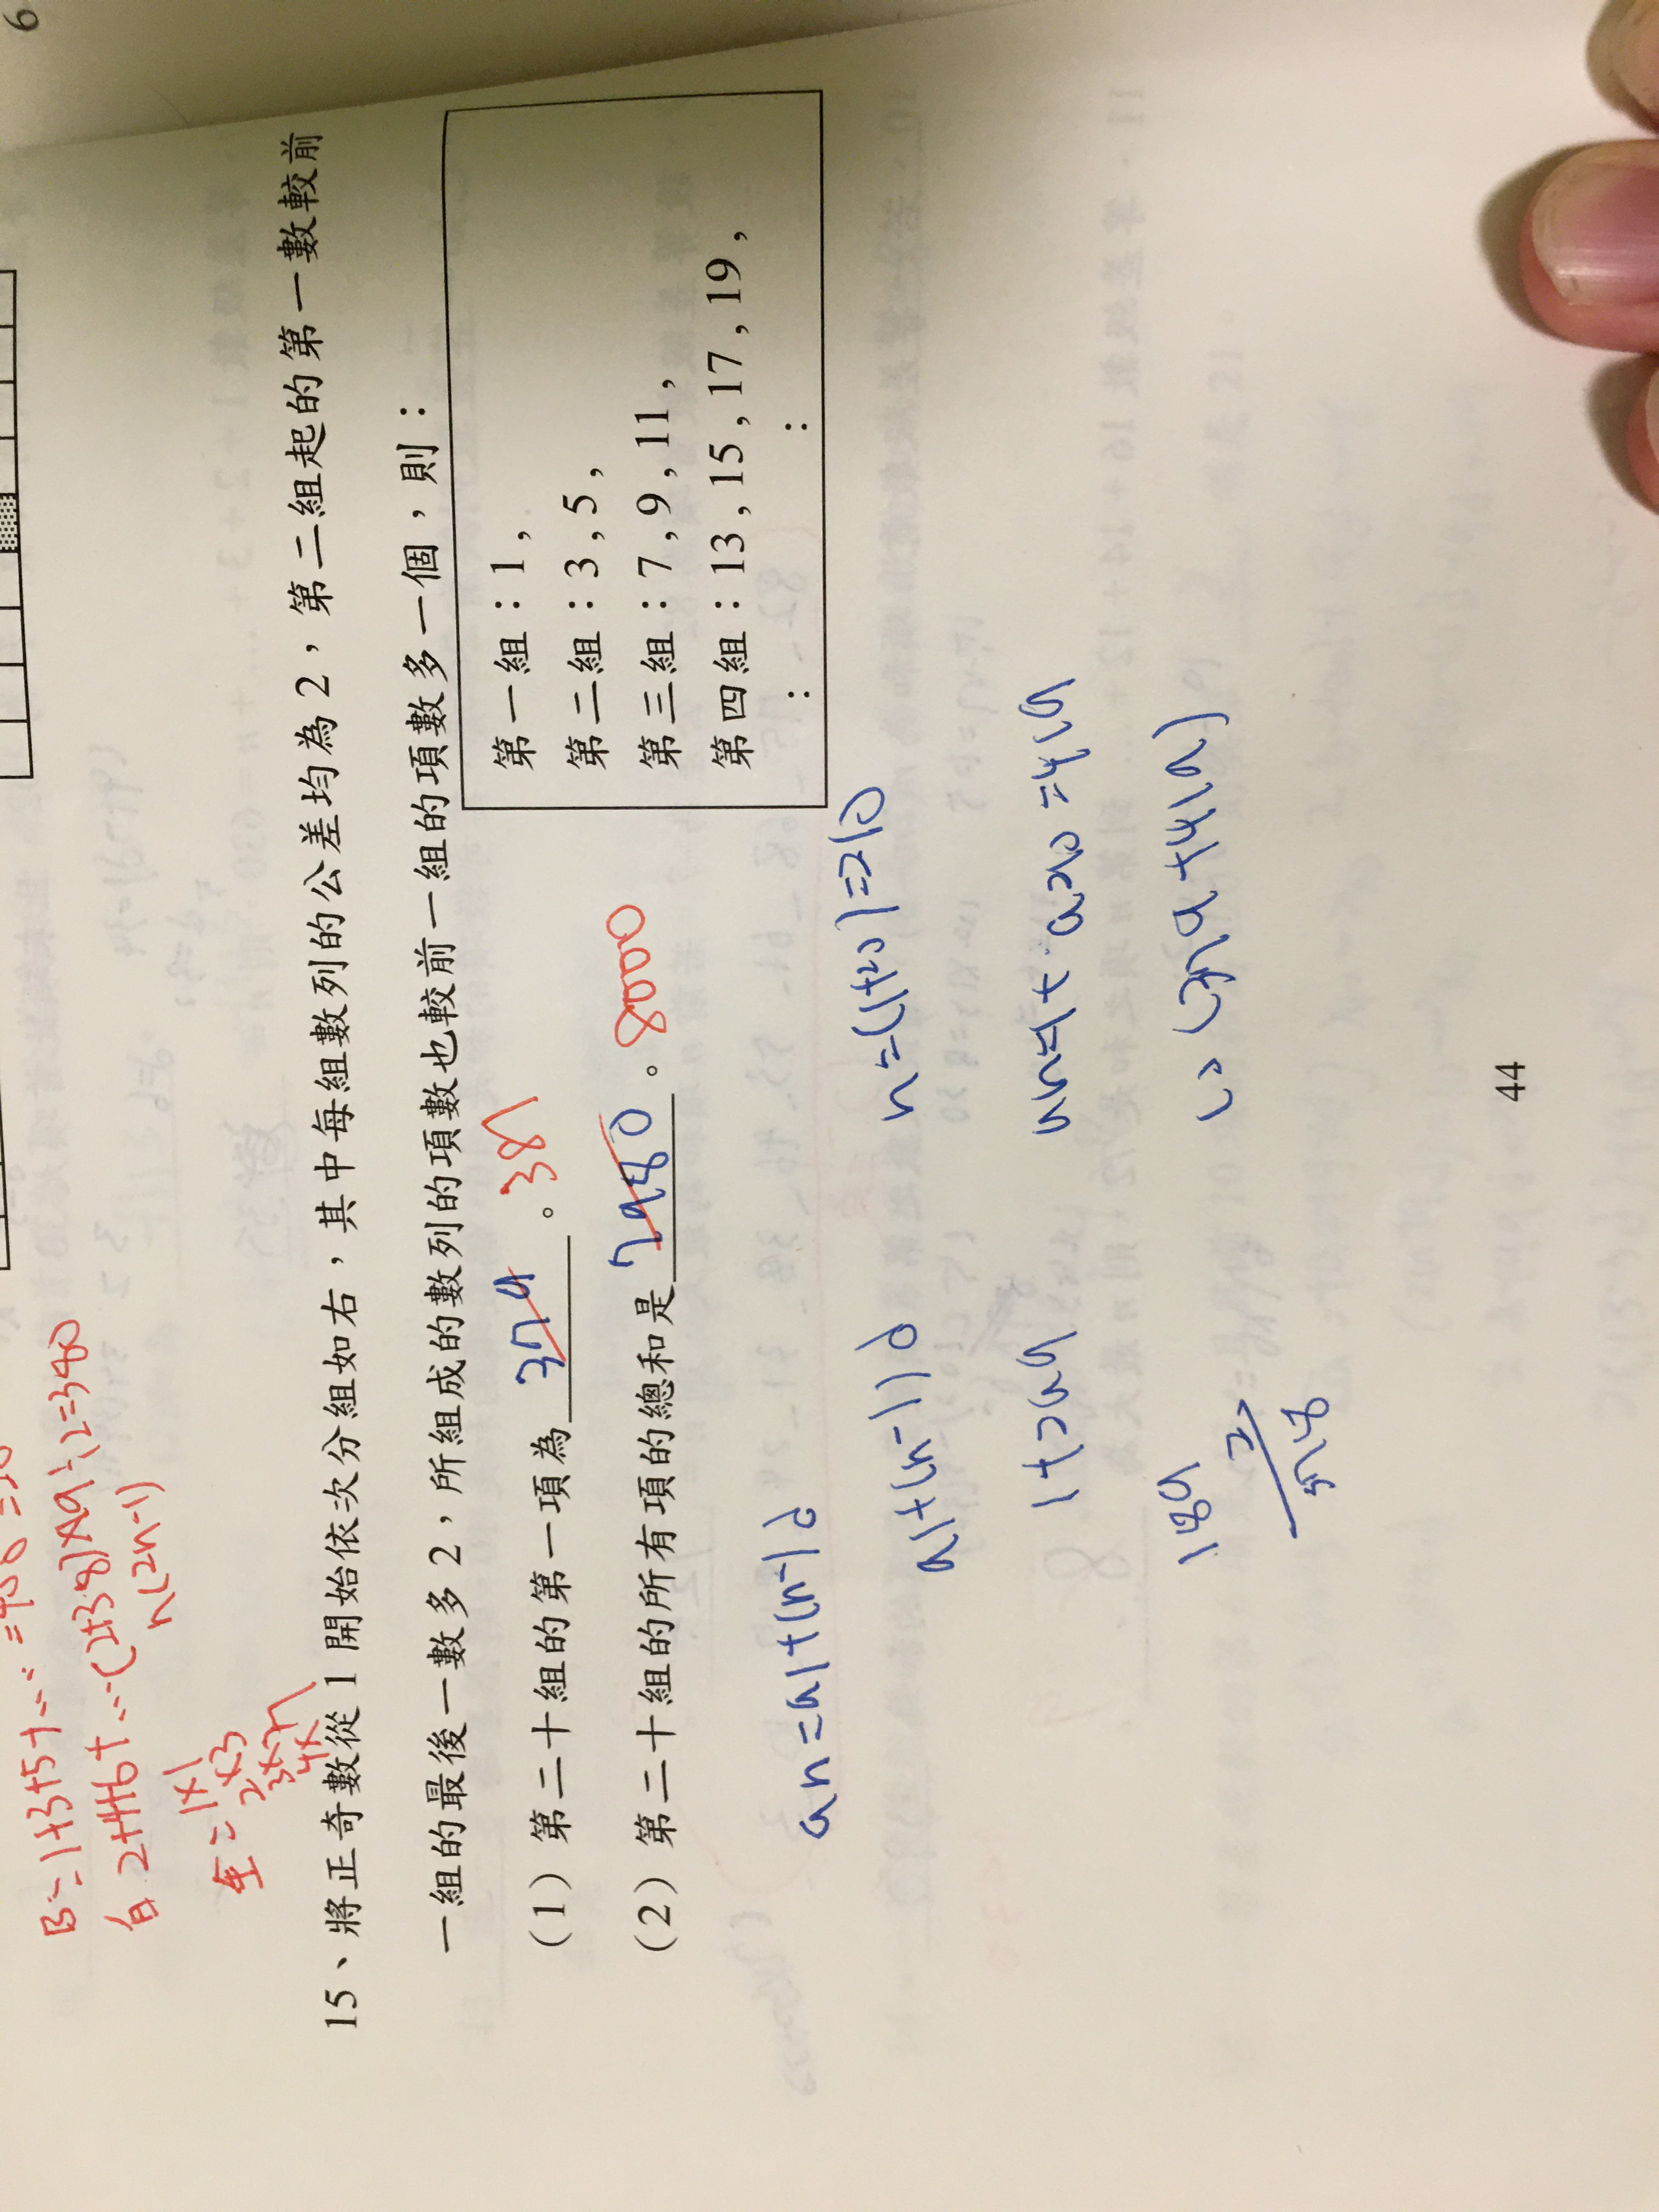 6
B=1+3+5+…
自 2+4+6+…(2+38)×19÷2=380
n(2n-1)
全=1×1
2×3
4×7
15、將正奇數從 1 開始依次分組如右，其中每組數列的公差均為 2，第二組起的第一數較前
一組的最後一數多 2，所組成的數列的項數也較前一組的項數多一個，則：
(1) 第二十組的第一項為 379 。381
(2) 第二十組的所有項的總和是 7980 。8000
第一組：1，
第二組：3，5，
第三組：7，9，11，
第四組：13，15，17，19，
： ：
an=a1+(n-1)d
a1+(n-1)d
n=(1+20)=210
1+209
a210=419
189
2
378
44